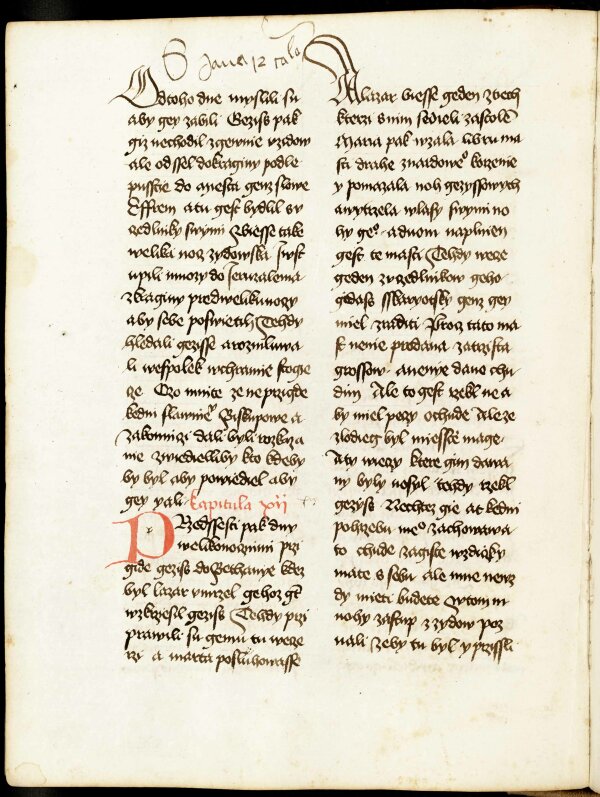 S Jana 12 ta
Odtoho dne myslili su
aby gey zabili Geziss pak
giz nechodil zgewnie wzidow
ale odssel dokraginy podle
pusstie do miesta genz slowe
Effrem a tu gest bydlil sv
zedlniky swymi Biesse take
welika noc zydowska Iwst
upili mnozy do Jeruzalema
zkraginy przedwelikunoczy
aby sebe poswietili Tehdy
hledali gezisse arozmluwa
li wespolek wchramie stogie
cze Czo mnite ze ne przigde
kedni slawnie Biskupowe a
zakonnici dali byli rozkaza
nie zwiedielliby kto kdeby
by byl aby powiediel aby
gey yali kapitula xii
Przedssesti pak dny
welikonocznimi przi
gide geziss do Bethanye kdez
byl lazar vmrzel gehoz gt
wzkrziesil geziss Tehdy przi
prawili su gemu tu wecze
rzi a marta posluhowasse
A lazar biesse geden ztiech
kterzi snim sedieli zastolem
Maria pak wzala libru ma
sti drahe znardoweo korzenie
y pomazala noh gezyssowych
awytrzela wlasy swymi no
hy geo aduom naplnien
gest te masti Tehdy wecze
geden zvczedlnikow geho
gidass Sskaryotsky genz gey
miel zraditi Procz tato ma
st nenie prodana zatrzista
grossow anenye dano chu
dim Ale to gest rzekl ne a
by miel peczy ochude Ale ze
zlodieg byl miessec mage
A ty wieczy ktere gim dawa
ny byly nosyl tehdy rzekl
geziss Nechtez gie at kedni
pohrzebu meo zachowawa
to chude zagiste wzdicky
mate s sebu ale mne newz
dy mieti budete Sytom m
nohy zastup z zydow poz
nali zeby tu byl y przissli